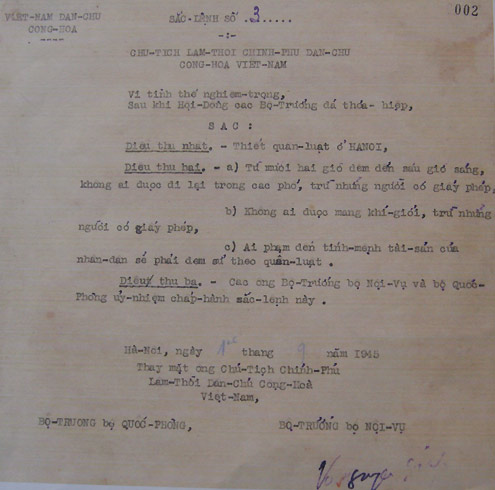 002
VIỆT-NAM DAN-CHU
CONG-HOA
SẮC-LỆNH SỐ 3.....
-:-
CHU-TỊCH LAM-THOI CHINH-PHU DAN-CHU
CONG-HOA VIỆT-NAM
Vi tinh thế nghiem-trọng,
Sau khi Hội-Dong cac Bộ-Trưởng đã thỏa-hiệp,
S A C :
Diều thu nhat. - Thiết quân-luật ở HANOI,
Diều thu hai. - a) Từ mười hai giò dêm đến sáu giò sáng,
không ai được di lại trong cac phố, trừ những người có giấy phép,
b) Không ai được mang khí-giới, trừ những
người có giấy phép,
c) Ai phạm đến tính-mệnh tài-sản của
nhân-dân sẽ phải đem xử theo quân-luật .
Diều thu ba. - Cac ong Bộ-Trưởng bộ Nội-Vụ và bộ Quốc-
Phòng ủy-nhiệm chấp-hành sắc-lệnh này .
Hà-Nội, ngày 1er thang 9 năm 1945
Thay mặt ong Chủ-Tịch Chính-Phủ
Lâm-Thời Dân-Chủ Cọng-Hoà
Việt-Nam,
BỘ-TRUONG bộ QUỐC-PHÒNG,
BỘ-TRƯỞNG bộ NỘI-VỤ